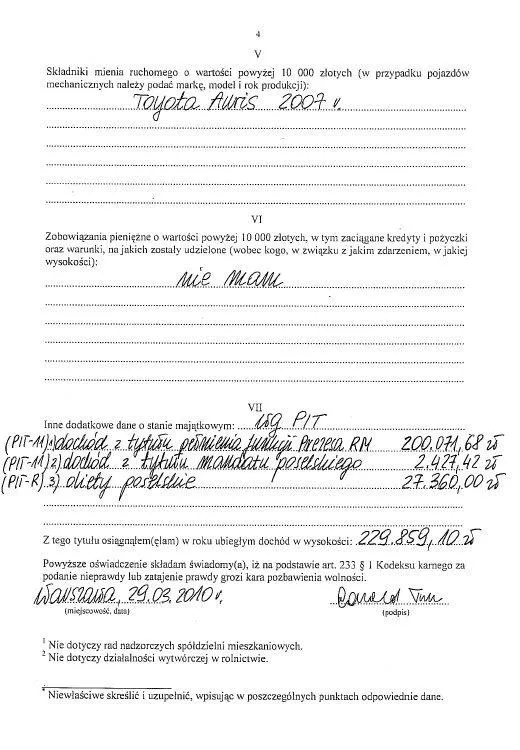 4
V
Składniki mienia ruchomego o wartości powyżej 10 000 złotych (w przypadku pojazdów
mechanicznych należy podać markę, model i rok produkcji):
Toyota Auris 2007 r.
VI
Zobowiązania pieniężne o wartości powyżej 10 000 złotych, w tym zaciągane kredyty i pożyczki
oraz warunki, na jakich zostały udzielone (wobec kogo, w związku z jakim zdarzeniem, w jakiej
wysokości):
nie mam
VII
Inne dodatkowe dane o stanie majątkowym: wg PIT
(PIT-11) 1) dochód z tytułu pełnienia funkcji Prezesa RM 200.071,68 zł
(PIT-11) 2) dochód z tytułu mandatu poselskiego 2.427,42 zł
(PIT-R) 3) diety poselskie 27.360,00 zł
Z tego tytułu osiągnąłem(ęłam) w roku ubiegłym dochód w wysokości: 229.859,10 zł
Powyższe oświadczenie składam świadomy(a), iż na podstawie art. 233 § 1 Kodeksu karnego za
podanie nieprawdy lub zatajenie prawdy grozi kara pozbawienia wolności.
Warszawa, 29.03.2010 r. Donald Tusk
(miejscowość, data) (podpis)
1 Nie dotyczy rad nadzorczych spółdzielni mieszkaniowych.
2 Nie dotyczy działalności wytwórczej w rolnictwie.
* Niewłaściwe skreślić i uzupełnić, wpisując w poszczególnych punktach odpowiednie dane.